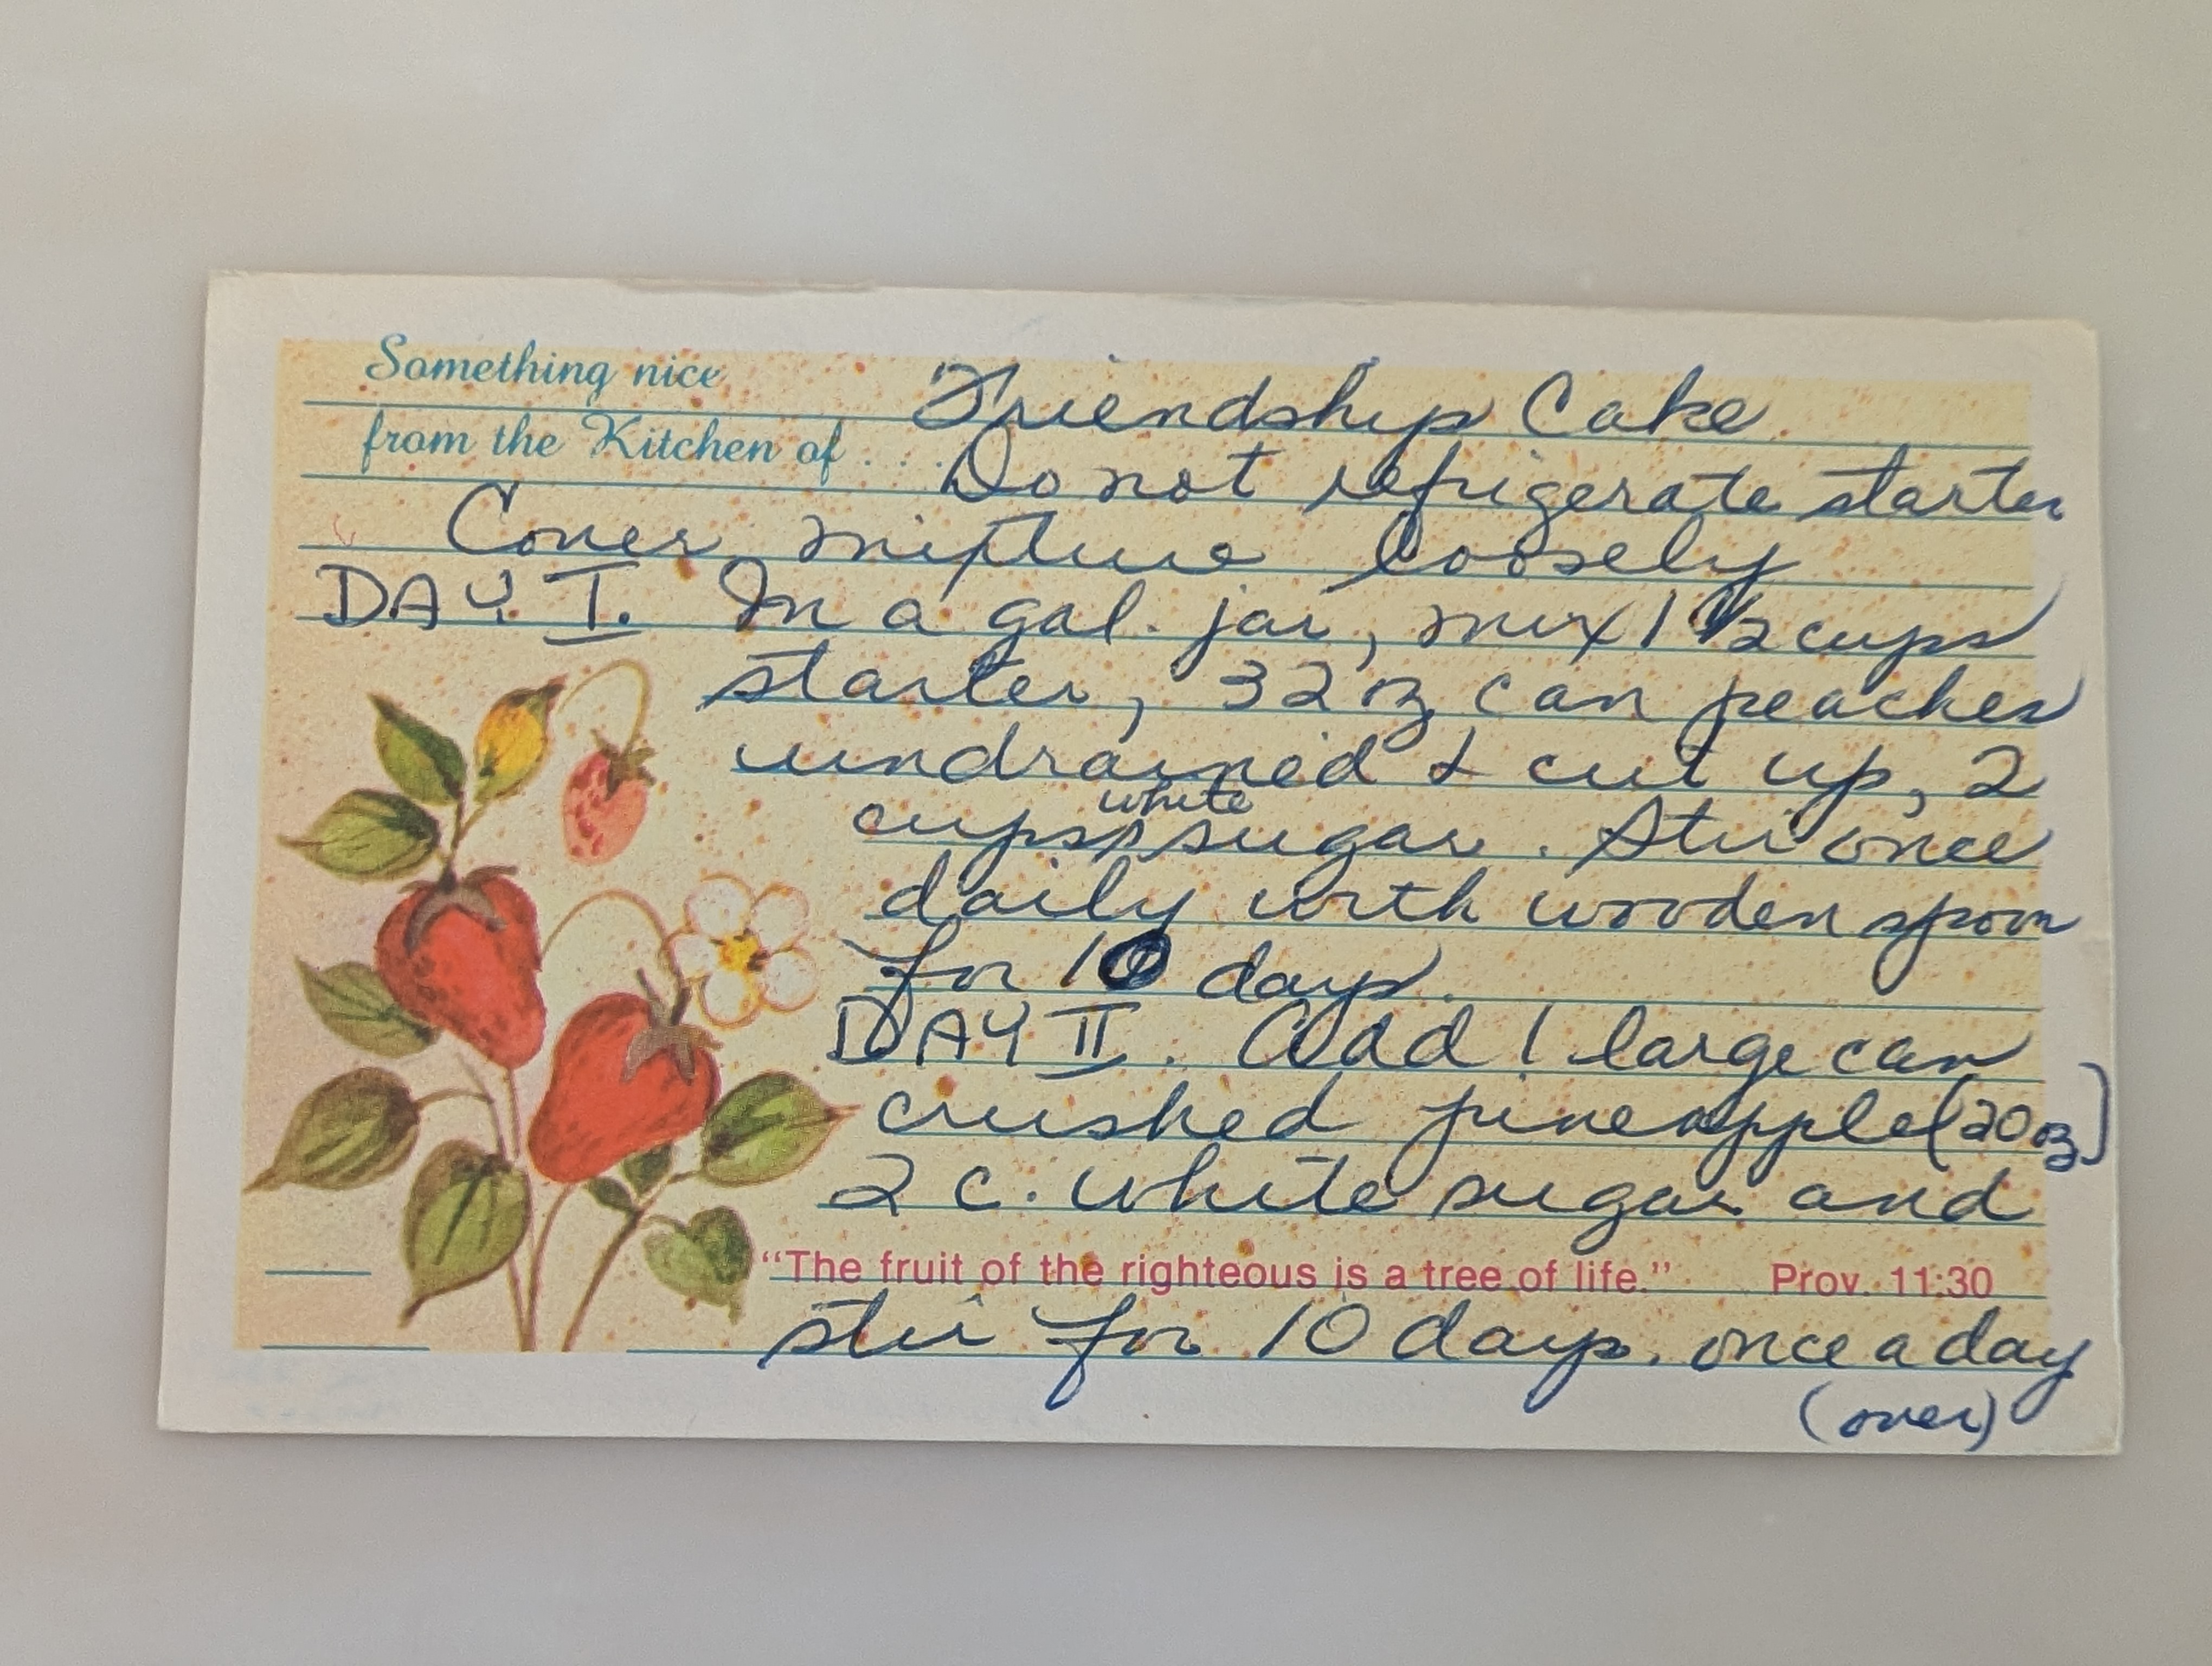 Something nice
from the Kitchen of . . .
Friendship Cake
Do not refrigerate starter
Cover mixture loosely
DAY I. In a gal. jar, mix 1 1/2 cups
starter, 32 oz can peaches
undrained & cut up, 2
cups white sugar. Stir once
daily with wooden spoon
for 10 days.
DAY II. Add 1 large can
crushed pineapple (20 oz)
2 c. white sugar and
"The fruit of the righteous is a tree of life." Prov. 11:30
stir for 10 days. once a day
(over)